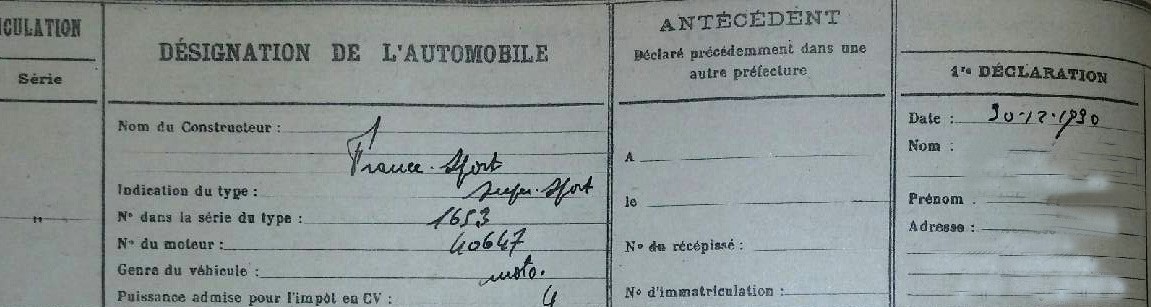 ICULATION
Série
"
DÉSIGNATION DE L'AUTOMOBILE
Nom du Constructeur :
France-Sport
Indication du type : super-sport
N° dans la série du type : 1653
N° du moteur : 40647
Genre du véhicule : moto.
Puissance admise pour l'impôt en CV : 4
ANTÉCÉDENT
Déclaré précédemment dans une
autre préfecture
A
le
N° du récépissé :
N° d'immatriculation :
1re DÉCLARATION
Date : 30-12-1930
Nom :
Prénom
Adresse :